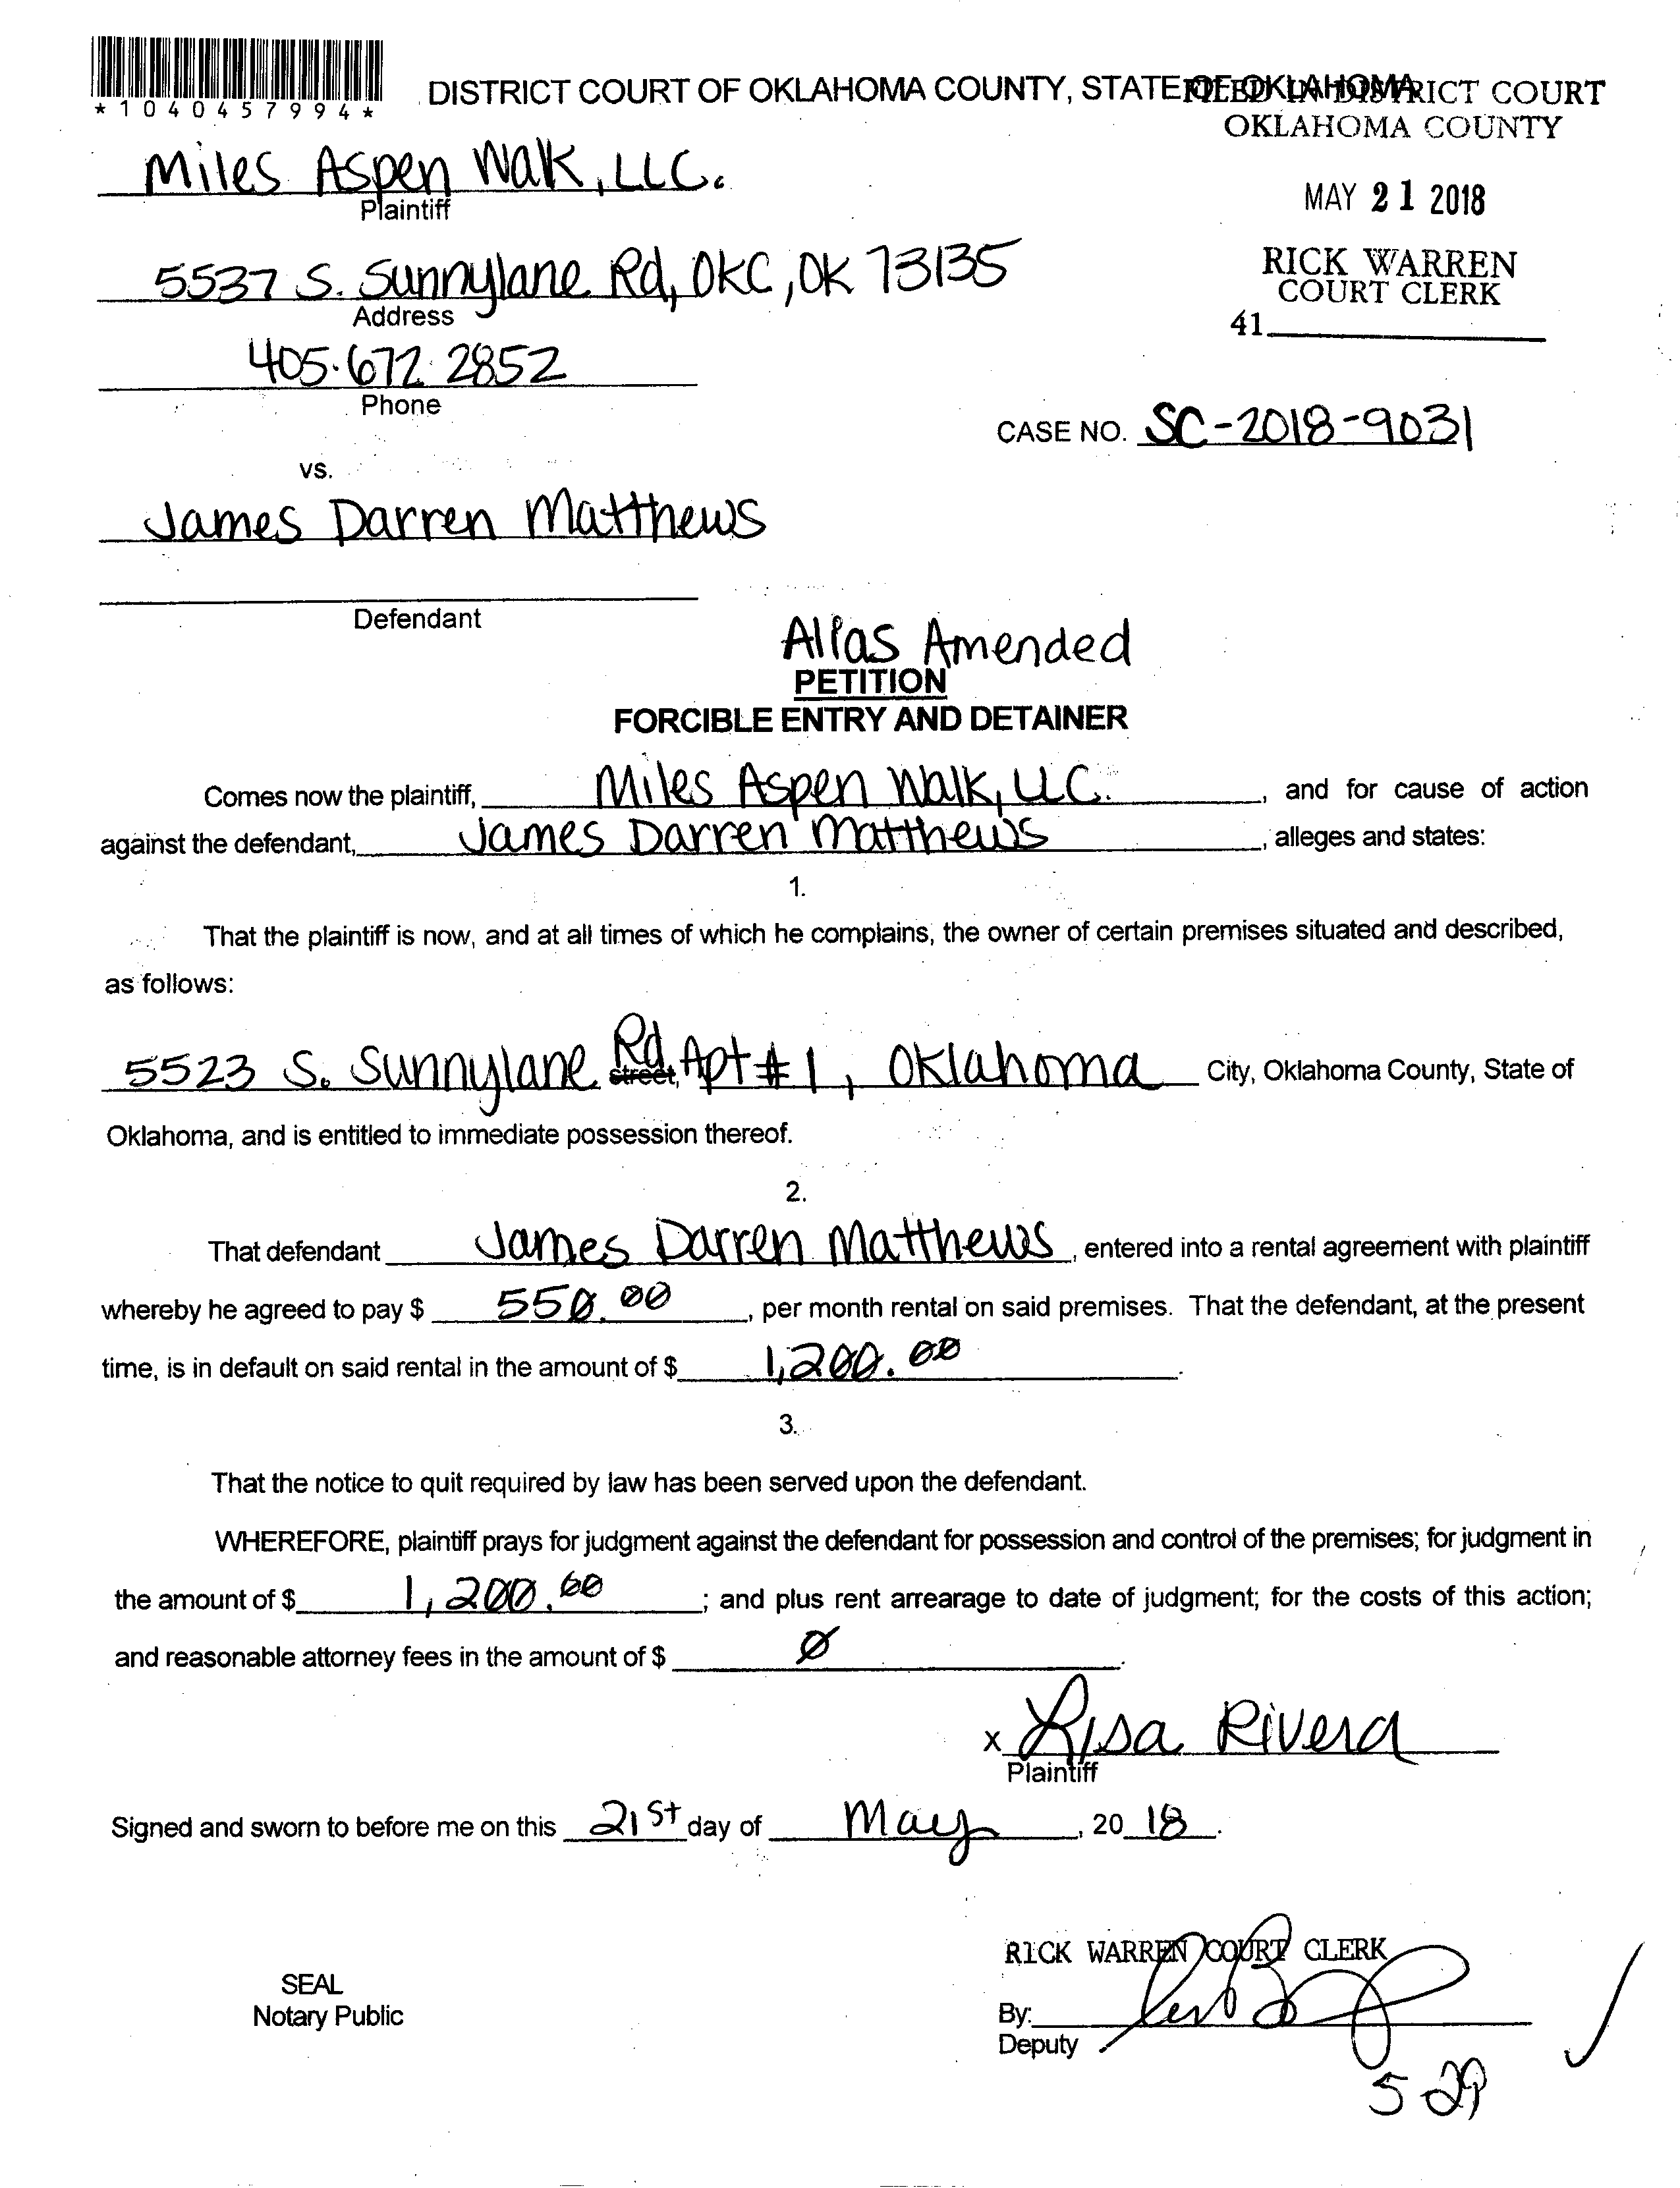 *1040457994*
DISTRICT COURT OF OKLAHOMA COUNTY, STATE OF OKLAHOMA
FILED IN DISTRICT COURT
OKLAHOMA COUNTY
Miles Aspen Walk, LLC.
Plaintiff
MAY 21 2018
5537 S. Sunnylane Rd, OKC, OK 73135
Address
RICK WARREN
COURT CLERK
41
405.672.2852
Phone
CASE NO. SC-2018-9031
vs.
James Darren Matthews
Defendant
Alias Amended
PETITION
FORCIBLE ENTRY AND DETAINER
Comes now the plaintiff, Miles Aspen Walk, LLC. , and for cause of action
against the defendant, James Darren Matthews , alleges and states:
1.
That the plaintiff is now, and at all times of which he complains, the owner of certain premises situated and described,
as follows:
5523 S. Sunnylane Rd street, Apt #1, Oklahoma City, Oklahoma County, State of
Oklahoma, and is entitled to immediate possession thereof.
2.
That defendant James Darren Matthews , entered into a rental agreement with plaintiff
whereby he agreed to pay $ 550.00 , per month rental on said premises. That the defendant, at the present
time, is in default on said rental in the amount of $ 1,200.00 .
3.
That the notice to quit required by law has been served upon the defendant.
WHEREFORE, plaintiff prays for judgment against the defendant for possession and control of the premises; for judgment in
the amount of $ 1,200.00 ; and plus rent arrearage to date of judgment; for the costs of this action;
and reasonable attorney fees in the amount of $ Ø .
x Lisa Rivera
Plaintiff
Signed and sworn to before me on this 21st day of May , 20 18 .
RICK WARREN COURT CLERK
SEAL
Notary Public
By:
Deputy
5 29